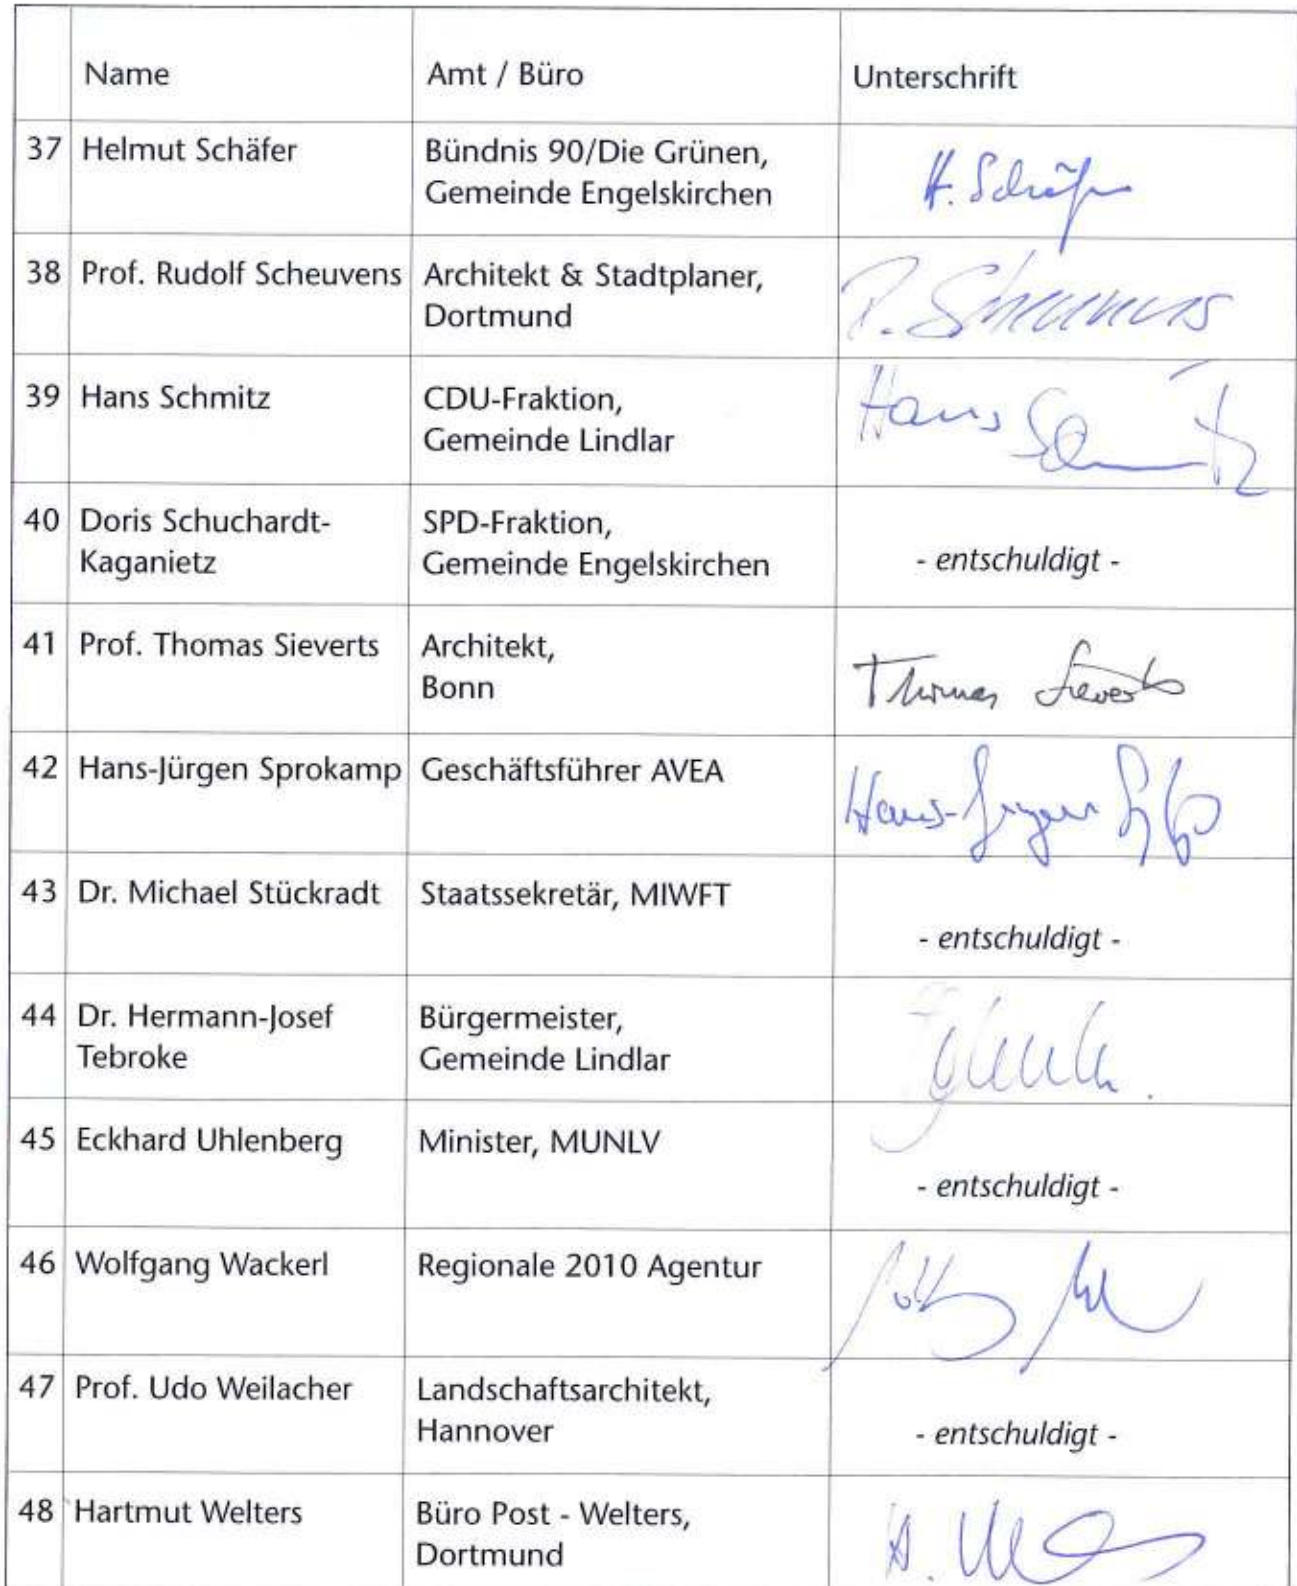 Name Amt / Büro Unterschrift
37 Helmut Schäfer Bündnis 90/Die Grünen,
Gemeinde Engelskirchen H. Schäfer
38 Prof. Rudolf Scheuvens Architekt & Stadtplaner,
Dortmund R. Scheuvens
39 Hans Schmitz CDU-Fraktion,
Gemeinde Lindlar Hans Schmitz
40 Doris Schuchardt- SPD-Fraktion,
Kaganietz Gemeinde Engelskirchen - entschuldigt -
41 Prof. Thomas Sieverts Architekt,
Bonn Thomas Sieverts
42 Hans-Jürgen Sprokamp Geschäftsführer AVEA
Hans-Jürgen
43 Dr. Michael Stückradt Staatssekretär, MIWFT
- entschuldigt -
44 Dr. Hermann-Josef Bürgermeister,
Tebroke Gemeinde Lindlar
45 Eckhard Uhlenberg Minister, MUNLV
- entschuldigt -
46 Wolfgang Wackerl Regionale 2010 Agentur
47 Prof. Udo Weilacher Landschaftsarchitekt,
Hannover - entschuldigt -
48 Hartmut Welters Büro Post - Welters,
Dortmund H.